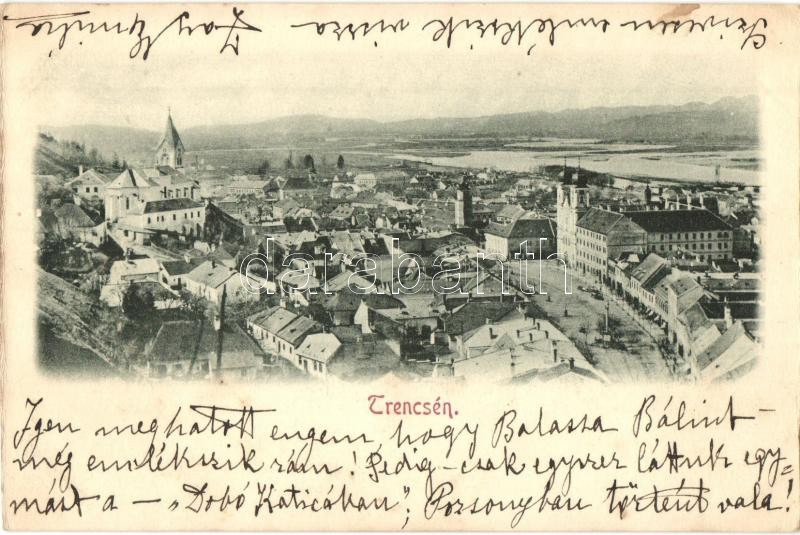 Szivesen emlékszik vissza
Zay Emilia
databanth
Trencsén.
Igen meghatott engem, hogy Balassa Bálint –
még emlékszik rám! Pedig – csak egyszer láttuk egy=
mást a – "Dobó Katicában"; Pozsonyban történt vala!